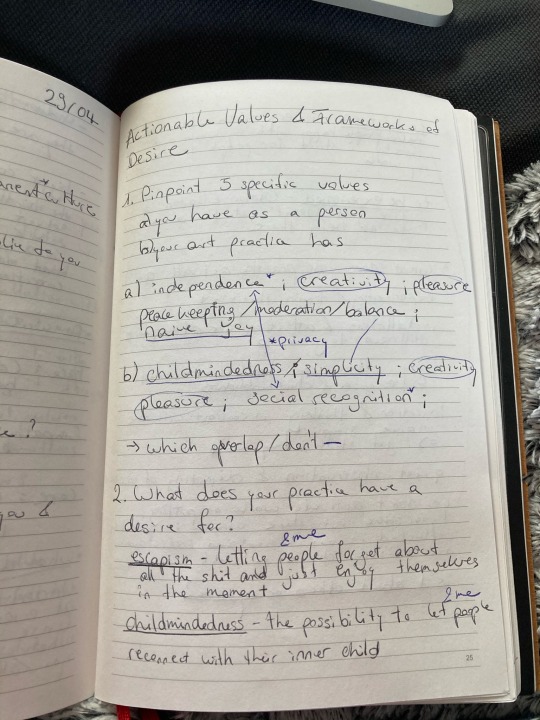 29/04
Actionable Values & Frameworks of
Desire
1. Pinpoint 5 specific values
a) you have as a person
b) your art practice has
a) independence* ; creativity ; pleasure
peace keeping / moderation / balance ;
naive joy
*privacy
b) childmindedness ; simplicity ; creativity
pleasure ; social recognition* ;
→ which overlap / don't —
2. What does your practice have a
desire for?
&me
escapism - letting people forget about
all the shit and just enjoy themselves
in the moment
&me
childmindedness - the possibility to let people
reconnect with their inner child
25